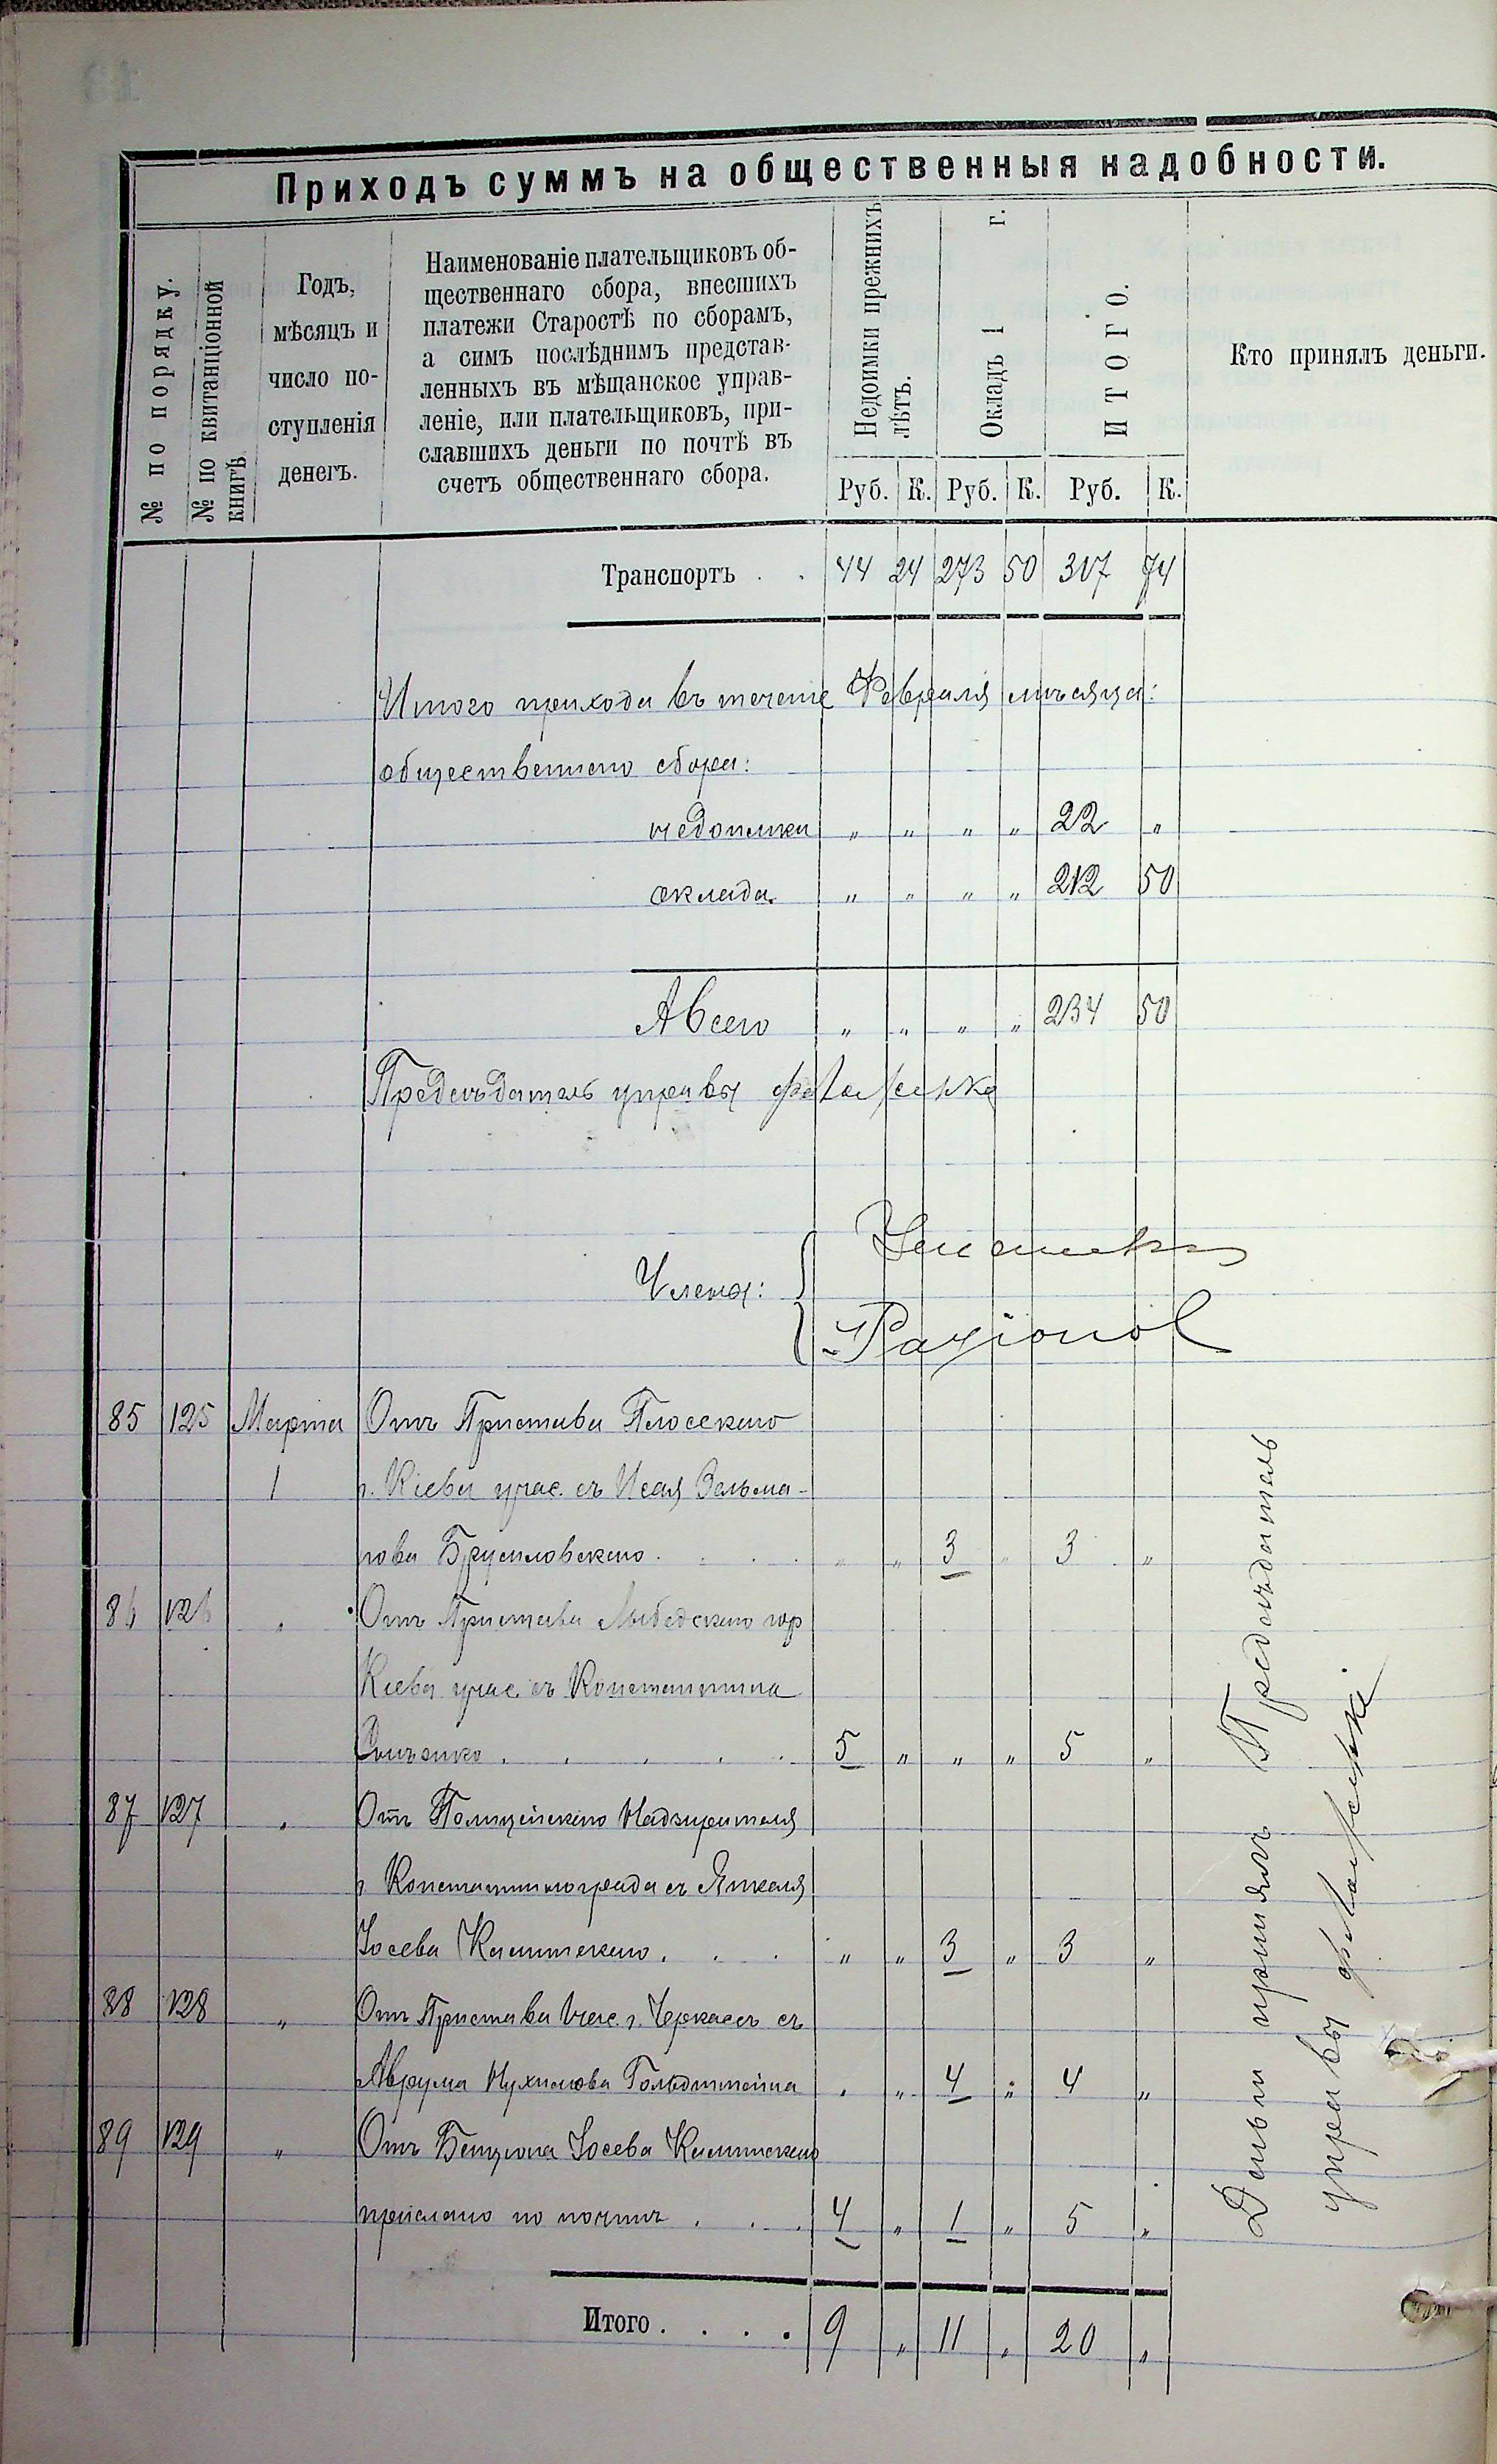 Приходъ суммъ на общественныя надобности.
№ по порядку.
№ по квитанціонной
книгѣ
Годъ,
мѣсяцъ и
число по-
ступленія
денегъ.
Наименованіе плательщиковъ об-
щественнаго сбора, внесшихъ
платежи Старостѣ по сборамъ,
а симъ послѣднимъ представ-
ленныхъ въ мѣщанское управ-
леніе, или плательщиковъ, при-
славшихъ деньги по почтѣ въ
счетъ общественнаго сбора.
Недоимки прежнихъ
лѣтъ.
Окладъ 1 г.
ИТОГО.
Кто принялъ деньги.
Руб. К. Руб. К. Руб. К.
Транспортъ . . 44 24 273 50 317 74
Итого прихода въ теченіе Февраля мѣсяца:
общественнаго сбора:
недоимки " " " " 22 "
оклада " " " " 212 50
А всего " " " " 234 50
Предсѣдатель управы
Члены:
85 125 Марта Отъ Пристава Плосскаго
1 г. Кіева учас. съ Исая Зельма-
нова Брусиловскаго . . . . " " 3 " 3 "
86 126 " Отъ Пристава Лыбедскаго гор
Кіева учас. съ Константина
5 " " " 5 "
87 127 " Отъ Полицейскаго Надзирателя
г. Константинограда съ Янкеля
Іосева Каминскаго . . . " " 3 " 3 "
88 128 " Отъ Пристава г. Черкассъ съ
Аврума Нухимова Гольдштейна . " 4 " 4 "
89 129 " Отъ Бенціона Іосева Каминскаго
прислано по почтѣ . . . 4 " 1 " 5 "
Итого . . . . 9 " 11 " 20 "
Деньги принялъ Предсѣдатель
управы